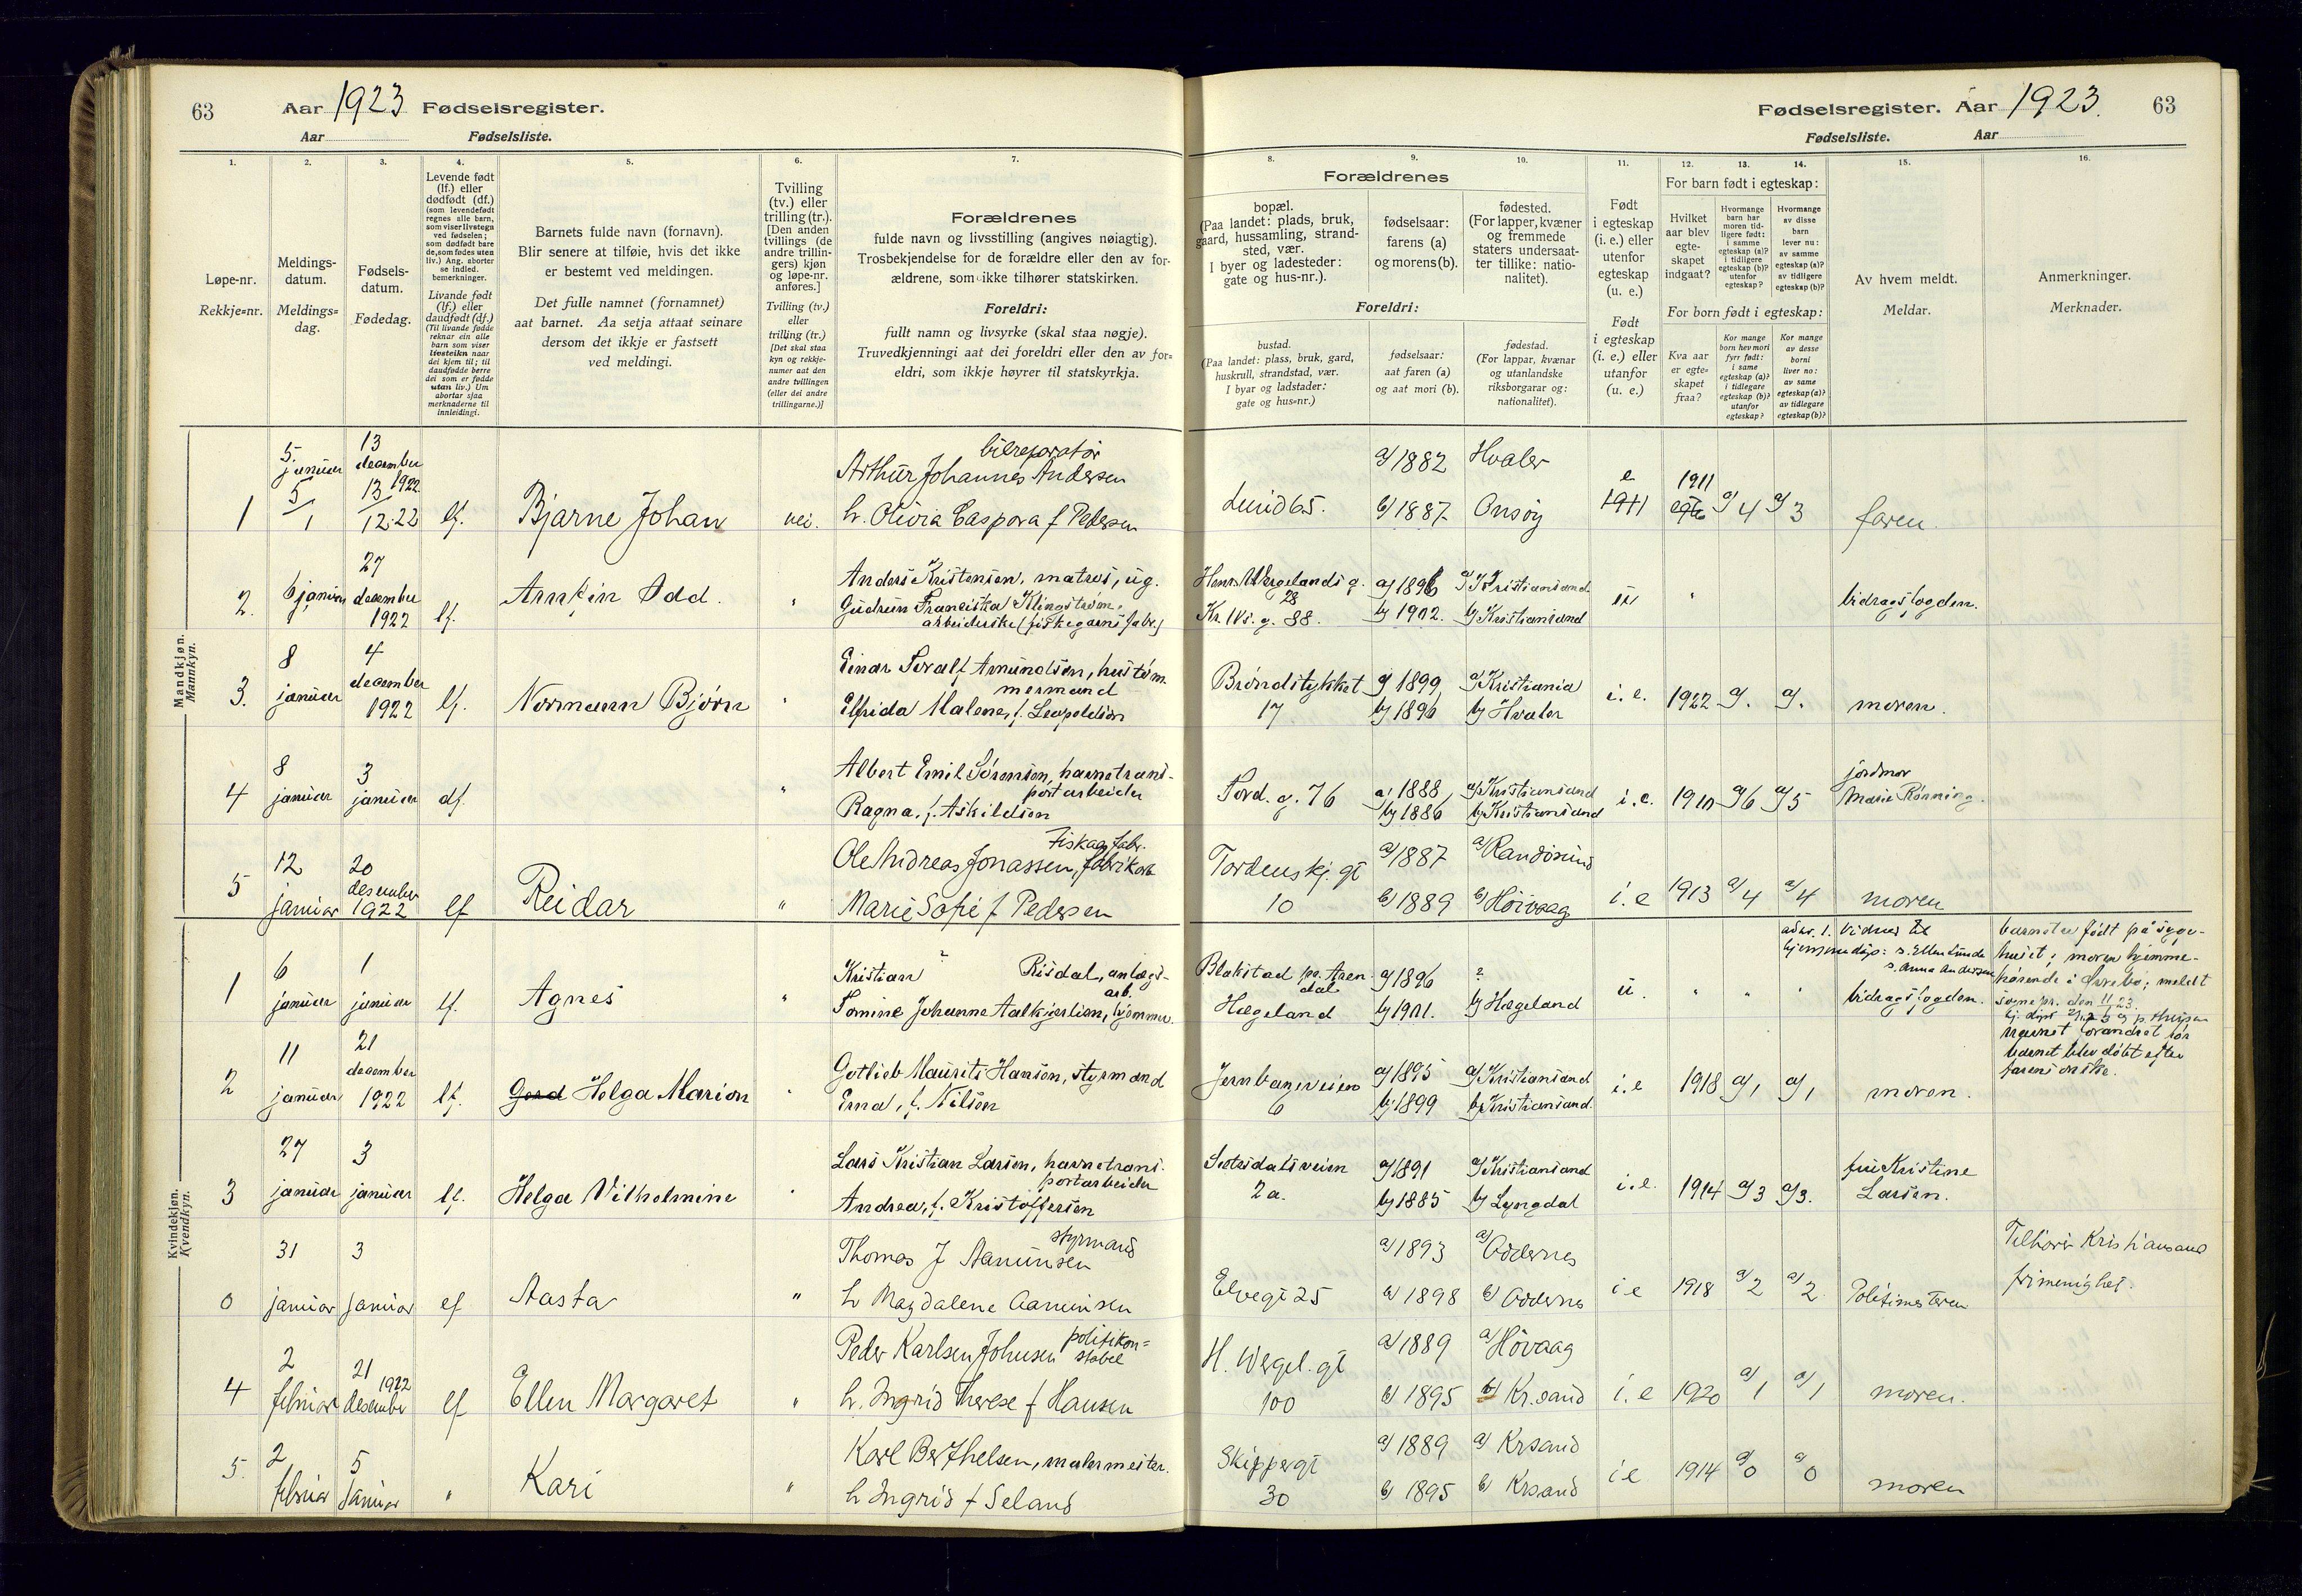 63 Aar 1923 Fødselsregister.
Aar Fødselsliste.
Fødselsregister. Aar 1923. 63
Fødselsliste. Aar
1. 2. 3. 4. 5. 6. 7. 8. 9. 10. 11. 12. 13. 14. 15. 16.
Løpe-nr.
Rekkje=nr.
Meldings-
datum.
Meldings=
dag.
Fødsels-
datum.
Fødedag.
Levende født
(lf.) eller
dødfødt (df.)
(som levendefødt
regnes alle barn,
som viser livstegn
ved fødselen;
som dødfødt bare
de, som fødes uten
liv.) Ang. aborter
se indled.
bemerkninger.
Livande født
(lf.) eller
daudfødt (df.)
(Til livande fødde
reknar ein alle
barn som viser
livsteikn naar
dei kjem til; til
daudfødde berre
dei som er fødde
utan liv.) Um
abortar sjaa
merknaderne til
innleidingi.
Barnets fulde navn (fornavn).
Blir senere at tilføie, hvis det ikke
er bestemt ved meldingen.
Det fulle namnet (fornamnet)
aat barnet. Aa setja attaat seinare
dersom det ikkje er fastsett
ved meldingi.
Tvilling
(tv.) eller
trilling (tr.).
[Den anden
tvillings (de
andre trillin-
gers) kjøn
og løpe-nr.
anføres.]
Tvilling (tv.)
eller
trilling (tr.)
[Det skal staa
kyn og rekkje-
numer aat den
andre tvillingen
(eller dei andre
trillingarne.)]
Forældrenes
fulde navn og livsstilling (angives nøiagtig).
Trosbekjendelse for de forældre eller den av for-
ældrene, som ikke tilhører statskirken.
Foreldri:
fullt namn og livsyrke (skal staa nøgje).
Truvedkjenningi aat dei foreldri eller den av for=
eldri, som ikkje høyrer til statskyrkja.
Forældrenes
bopæl.
(Paa landet: plads, bruk,
gaard, hussamling, strand-
sted, vær.
I byer og ladesteder:
gate og hus-nr.).
fødselsaar:
farens (a)
og morens (b).
fødested.
(For lapper, kvæner
og fremmede
staters undersaat-
ter tillike: natio-
nalitet).
Foreldri:
bustad.
(Paa landet: plass, bruk, gard,
huskrull, strandstad, vær.
I byar og ladstader:
gate og hus=nr.)
fødselsaar:
aat faren (a)
og aat mori (b).
fødestad.
(For lappar, kvænar
og utanlandske
riksborgarar og:
nationalitet).
Født
i egteskap
(i. e.) eller
utenfor
egteskap
(u. e.)
Født
i egteskap
(i. e.) eller
utanfor
egteskap
(u. e.)
For barn født i egteskap:
Hvilket
aar blev
egte-
skapet
indgaat?
Hvormange
barn har
moren tid-
ligere født:
i samme
egteskap (a)?
i tidligere
egteskap (b)?
utenfor
egteskap?
Hvormange
av disse
barn
lever nu:
av samme
egteskap (a)?
av tidligere
egteskap (b)?
For born født i egteskap:
Kva aar
er egte=
skapet
fraa?
Kor mange
born hev mori
fyrr født:
i same
egteskap (a)?
i tidlegare
egteskap (b)?
utanfor
egteskap?
Kor mange
av desse
borni
liver no:
av same
egteskap (a)?
av tidlegare
egteskap (b)?
Av hvem meldt.
Meldar.
Anmerkninger.
Merknader.
Mandkjøn.
Mannkyn.
5. januar 13 december 1922 bilreparatør
Arthur Johannes Andersen a/1882 Hvaler
1 5/1 13/12.22 lf. Bjarne Johan nei. h. Olivia Caspora f Pedersen Lund 65. b/1887. Onsøy e 1911 1911 egte a/4 a/3 faren.
27
2. 6 januar december 1922 lf. Arnfin Odd. " Anders Kristensen, matros, ug. Henr. Wergelands g. 28 a/1896 a/Kristiansand u " bidragsfogden.
Gudrun Franciska Klingstrøm, Kr. IVs. g. 88. b/1902. b/Kristiansand
arbeiderske (fiskegarnsfabr.)
3. 8 januar 4 december 1922 lf. Normann Bjørn " Einar Toralf Amundsen, hustøm=
mermand Brøndstykket 17 a/1899 a/Kristiania i. e. 1922 a/. a/. moren.
Elfrida Malene, f. Leopoldsen b/1896 b/Hvaler
4 8 januar 3 januar df. " Albert Emil Sørensen, havnetrans-
portarbeider Tord. g. 76 a/1888, a/Kristiansand i. e. 1910 a/6 a/5 jordmor
Ragna, f. Askildsen b/1886 b/Kristiansand Marie Rønning.
5 12 januar 20 desember 1922 lf Reidar " Fiskaa fabr.
Ole Andreas Jonassen, fabrikarb Tordenskj. gt 10 a/1887 a/Randøsund
Marie Sofie f Pedersen b/1889 b/Høivaag i. e 1913 a/4 a/4 moren
Kvindekjøn.
Kvendkyn.
1 6 januar 1 januar lf. Agnes " Kristian ? Risdal, anlægs-
arb. Blakstad pr. Arendal a/1896 ?
Tomine Johanne Aalkjerlien, hjemme. Hægeland b/1901. b/Hægeland u. " " " bidragsfogden.
vidner til
hjemmedåp: s. Ellen Lunde
s. Anna Andersen
barnet er født på syge-
huset; moren hjemme-
hørende i Øvrebø; meldt
sognepr. den 11/1 23.
2 11 januar 21 december 1922 lf. Gerd Helga Marion " Gotlieb Maurits Hansen, styrmand Jernbaneveien 6 a/1895 a/Kristiansand i. e 1918 a/1 a/1 moren.
Erna, f. Nilsen b/1899 b/Kristiansand.
navnet forandret før
barnet blev døbt efter
farens ønske.
3 27 januar 3 januar lf. Helga Vilhelmine " Lars Kristian Larsen, havnetrans-
portarbeider Setesdalsveien 2 a. a/1891 a/Kristiansand i. e. 1914 a/3 a/3. fru Kristine
Andrea, f. Kristoffersen b/1885 b/Lyngdal Larsen.
0 31 januar 3 januar lf Aasta " styrmand
Thomas J Aamunsen Elvegt 25 a/1893 a/Oddernes
h Magdalene Aamunsen b/1898 b/Oddernes i e 1918 a/2 a/2. Politimesteren
Tilhører Kristiansand
frimenighet.
4 2 februar 21 desember 1922 lf Ellen Margaret " politikon=
stabel
Peder Karlsen Johnsen H. Wergel. gt 100 a/1889 a/Høvaag
h. Ingrid Therese f Hansen b/1895 b/Kr. sand i. e 1920 a/1 a/1 moren.
5. 2 februar 5 januar " Kari " Karl Berthelsen, malermester. Skippergt 30 a/1889 a/Krsand
h Ingrid f Seland b/1895 b/Krsand i e 1914 a/0 a/0 moren